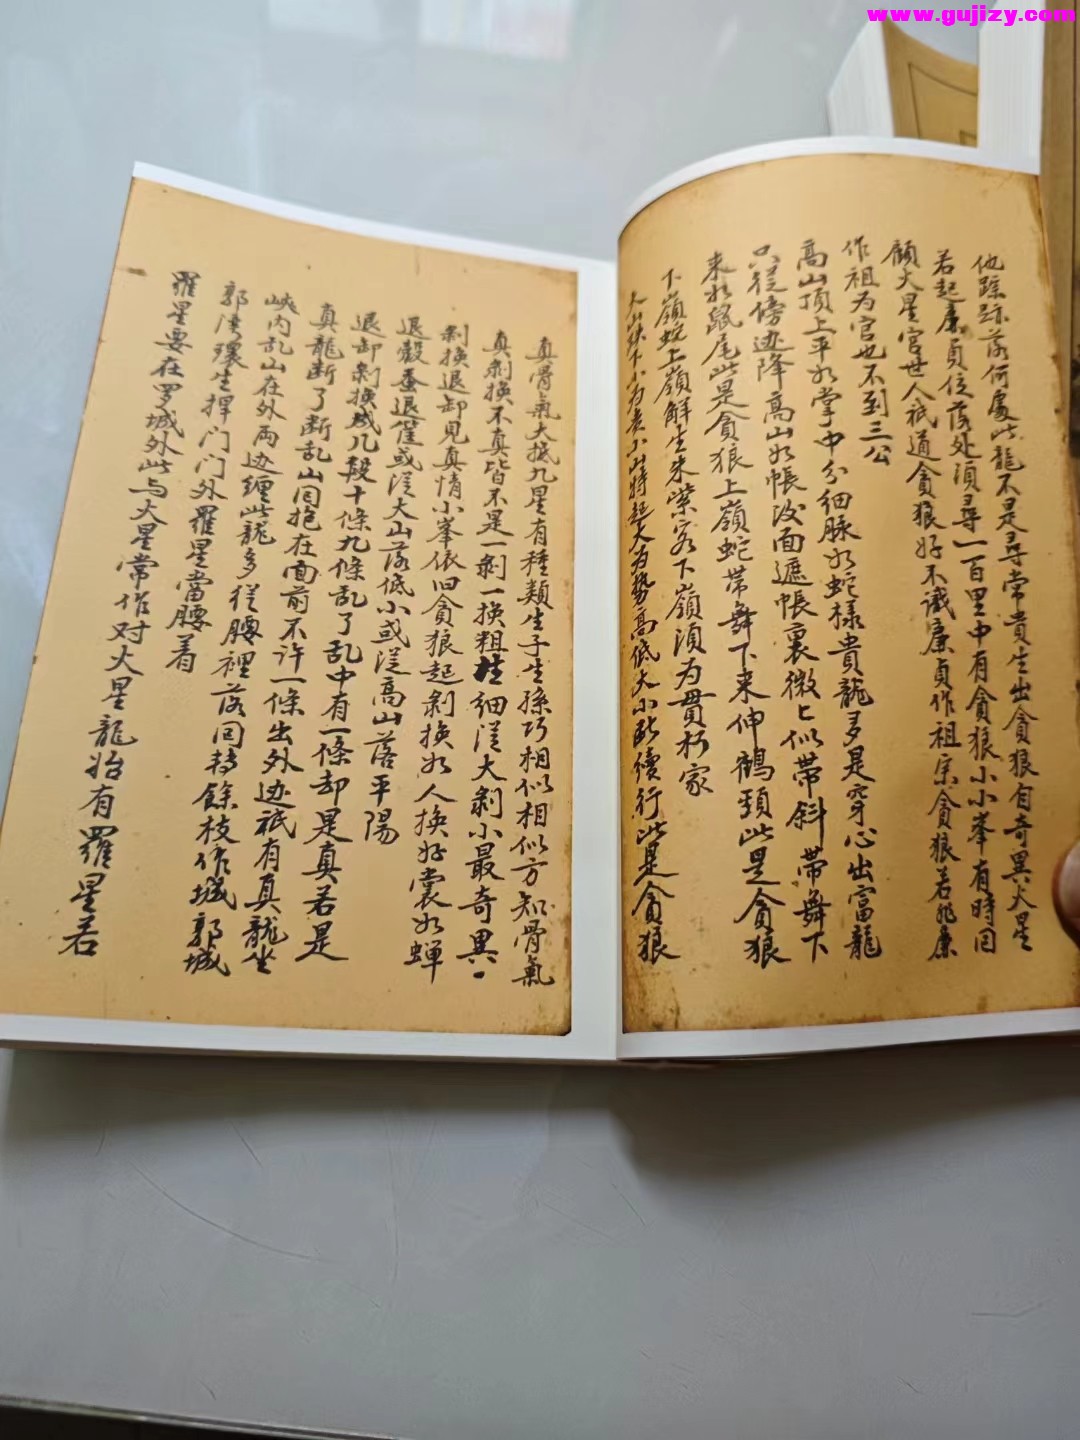 www.gujizy.com
他踪跡落何處此龍不是尋常貴生出貪狼自奇異火星
若起廉貞位落处須尋一百里中有貪狼小小峯有時回
顧火星宫世人祇道貪狼好不識廉貞作祖宗貪狼若非廉
作祖为官也不到三公
高山頂上平如掌中分细脉如蛇樣貴龍多是穿心出富龍
只從傍边降高山如帳後面遮帳裏微微似带斜带舞下
来如鼠尾此是貪狼上嶺蛇带舞下来伸鶴頸此是貪狼
下嶺蛇上嶺解生朱紫客下嶺須为贯朽家
大山峡下小为貴小山特起大为势高低大小断續行此是貪狼
真骨氣大抵九星有種類生子生孫巧相似相似方知骨氣
真剥换不真皆不是一剥一换粗生细從大剥小最奇異
剥换退卸見真情小峯依旧貪狼起剥换如人换好裳如蝉
退殼蚕退筐或從大山落低小或從高山落平陽
退卸剥换成几段十條九條乱了乱中有一條却是真若是
真龍断了断乱山回抱在面前不许一條出外边祇有真龍坐
峽内乱山在外两边缠此龍多從腰裡落回转餘枝作城郭城
郭彎環生捍门门外羅星當腰着
羅星要在罗城外此与火星常作对火星龍始有羅星若